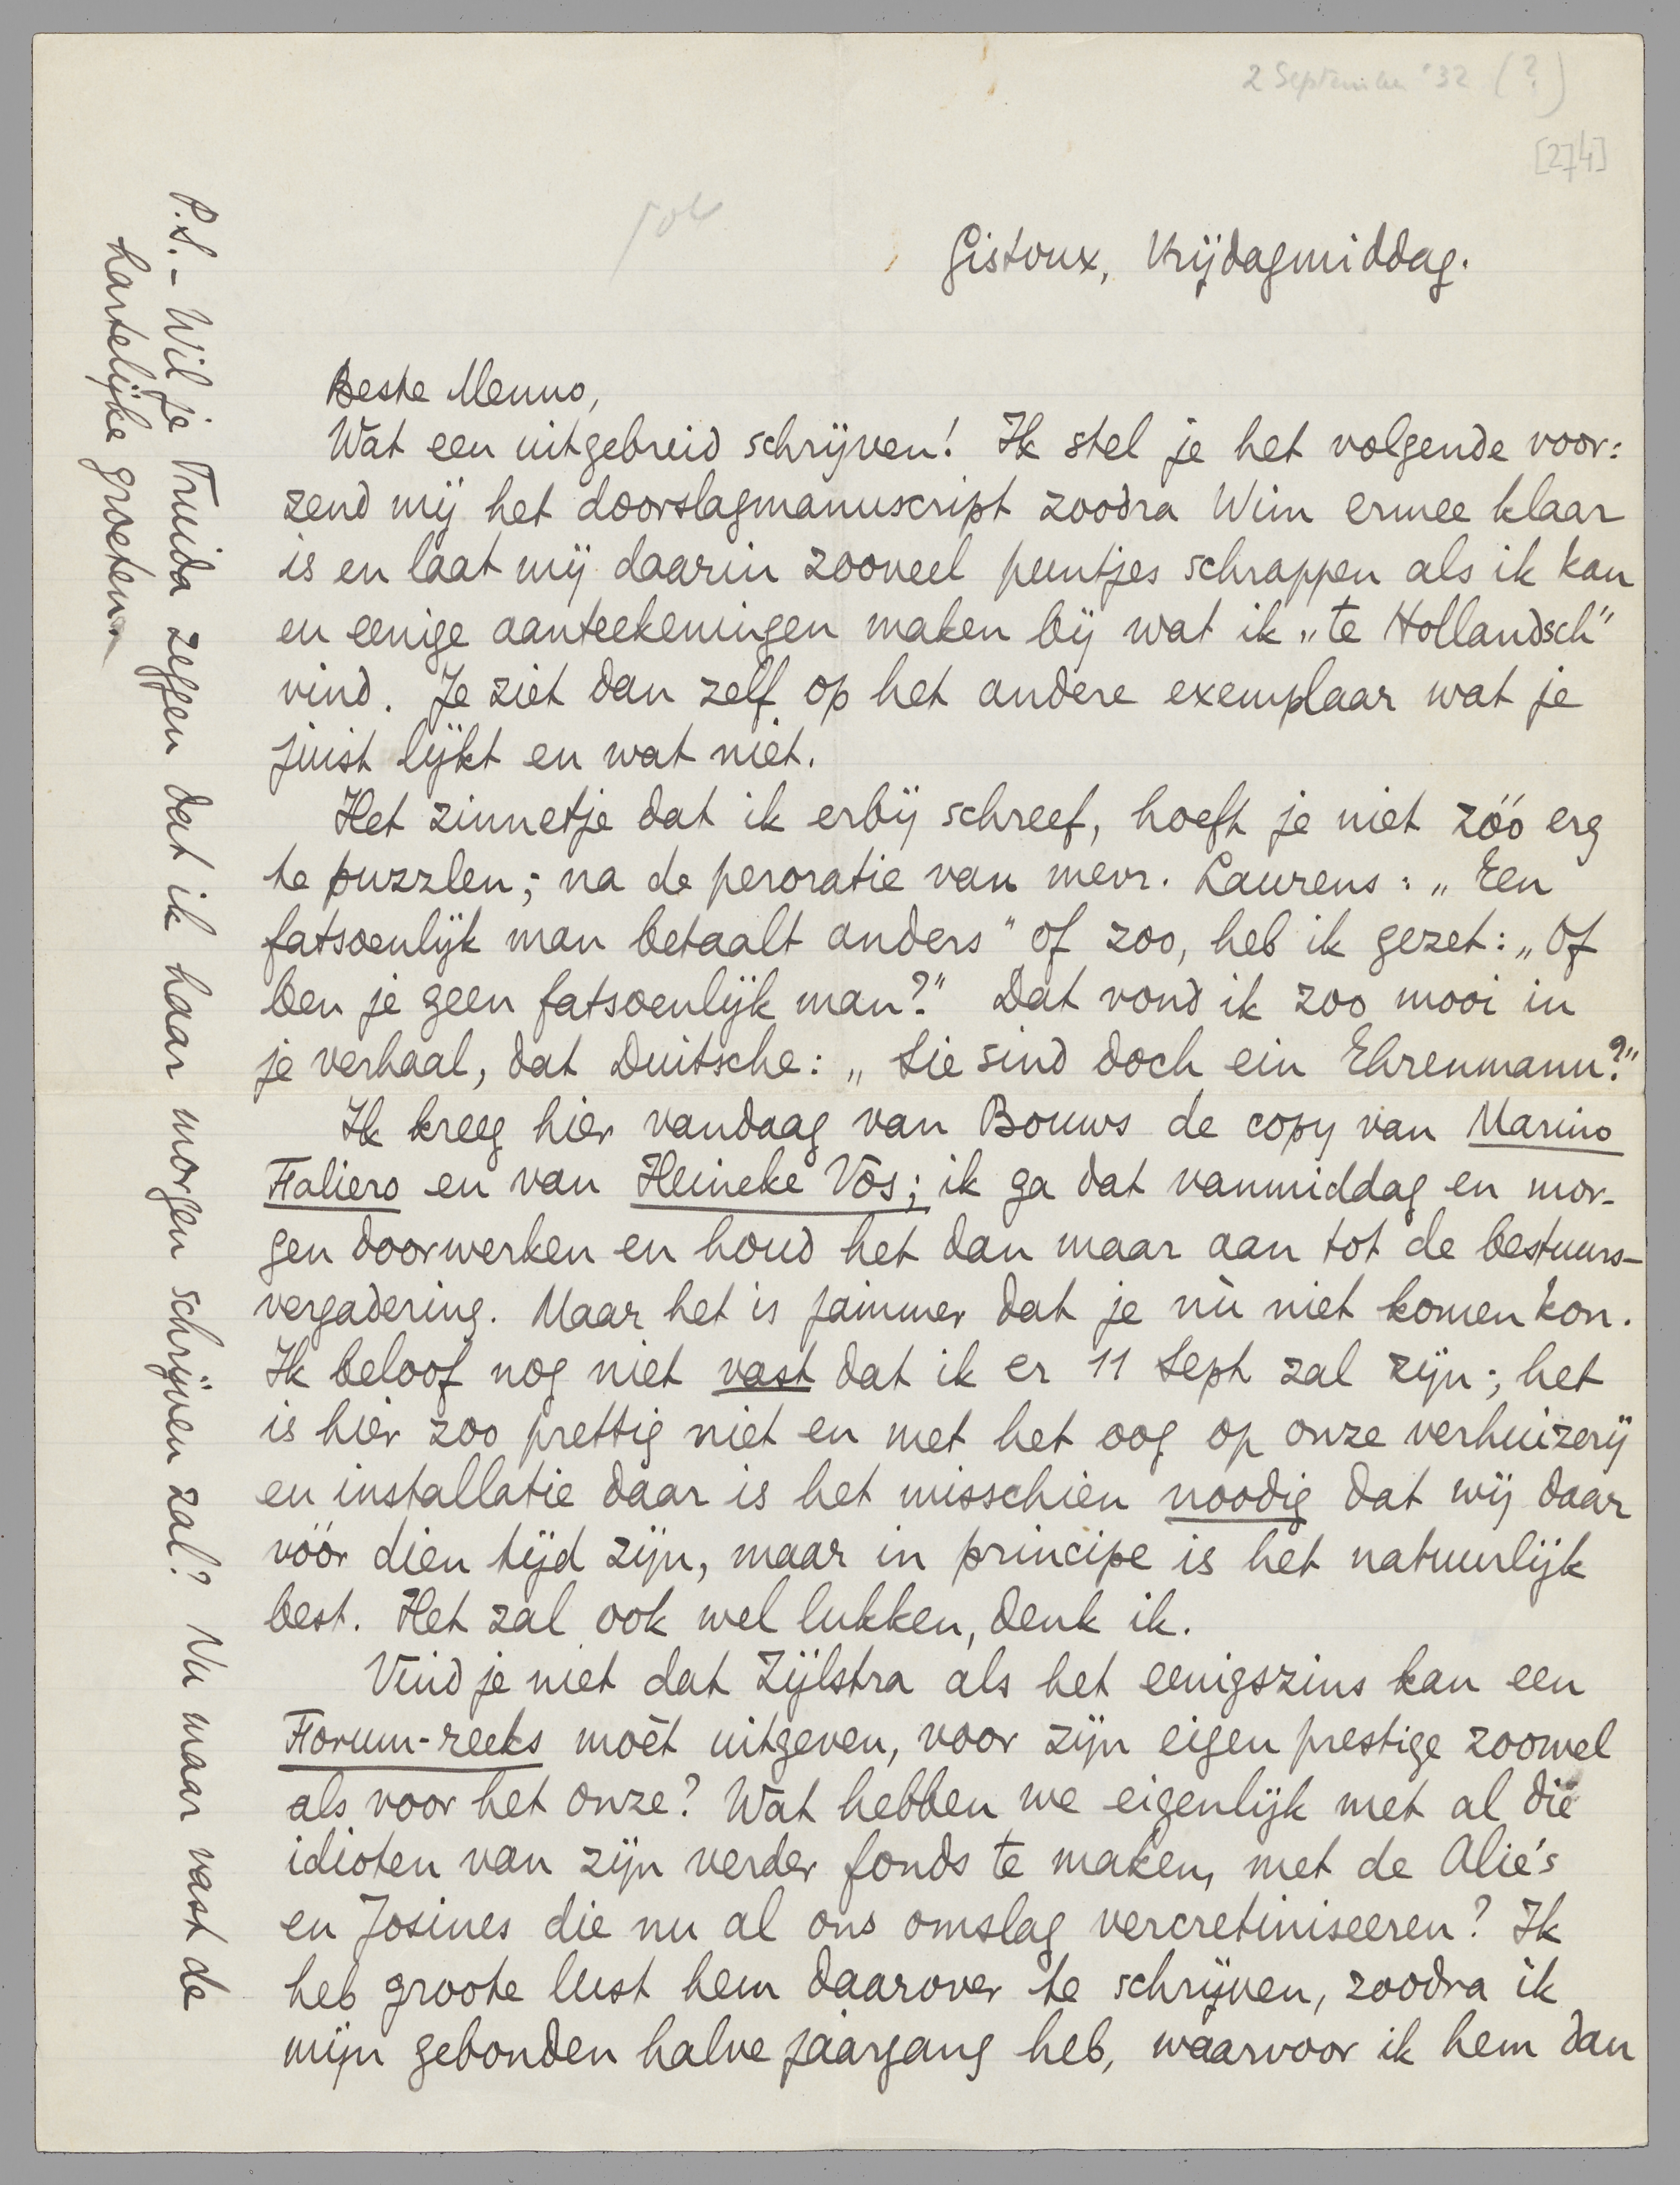 2 September '32 (?)
[274]
Gistoux, Vrijdagmiddag.
Beste Menno,
Wat een uitgebreid schrijven! Ik stel je het volgende voor:
zend mij het doorslagmanuscript zoodra Wim ermee klaar
is en laat mij daarin zooveel puntjes schrappen als ik kan
en eenige aanteekeningen maken bij wat ik „te Hollandsch"
vind. Je ziet dan zelf op het andere exemplaar wat je
juist lijkt en wat niet.
Het zinnetje dat ik erbij schreef, hoeft je niet zóó erg
te puzzlen; na de peroratie van mevr. Laurens: „Een
fatsoenlijk man betaalt anders" of zoo, heb ik gezet: „Of
ben je geen fatsoenlijk man?" Dat vond ik zoo mooi in
je verhaal, dat Duitsche: „Sie sind doch ein Ehrenmann?"
Ik kreeg hier vandaag van Bouws de copy van Marino
Faliero en van Heineke Vos; ik ga dat vanmiddag en mor-
gen doorwerken en houd het dan maar aan tot de bestuurs-
vergadering. Maar het is jammer dat je nù niet komen kon.
Ik beloof nog niet vast dat ik er 11 Sept zal zijn; het
is hier zoo prettig niet en met het oog op onze verhuizerij
en installatie daar is het misschien noodig dat wij daar
vóór dien tijd zijn, maar in principe is het natuurlijk
best. Het zal ook wel lukken, denk ik.
Vind je niet dat Zijlstra als het eenigszins kan een
Forum-reeks moèt uitgeven, voor zijn eigen prestige zoowel
als voor het onze? Wat hebben we eigenlijk met al die
idioten van zijn verder fonds te maken, met de Alie's
en Josines die nu al ons omslag vercretiniseeren? Ik
heb groote lust hem daarover te schrijven, zoodra ik
mijn gebonden halve jaargang heb, waarvoor ik hem dan
P.S. - Wil je Truida zeggen dat ik haar morgen schrijven zal? Nu maar vast de
hartelijke groeten.